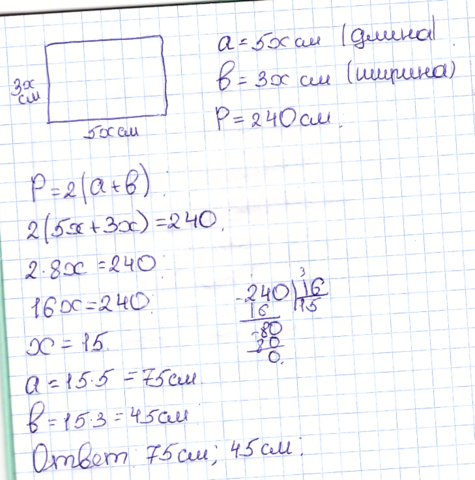 a = 5x см (длина)
3x см
в = 3x см (ширина)
5x см
P = 240 см.
P = 2(a+в)
2(5x+3x) = 240
2·8x = 240
16x = 240
x = 15
a = 15·5 = 75 см
в = 15·3 = 45 см
Ответ 75 см; 45 см
3
-240 | 16
16 | 15
-80
80
0